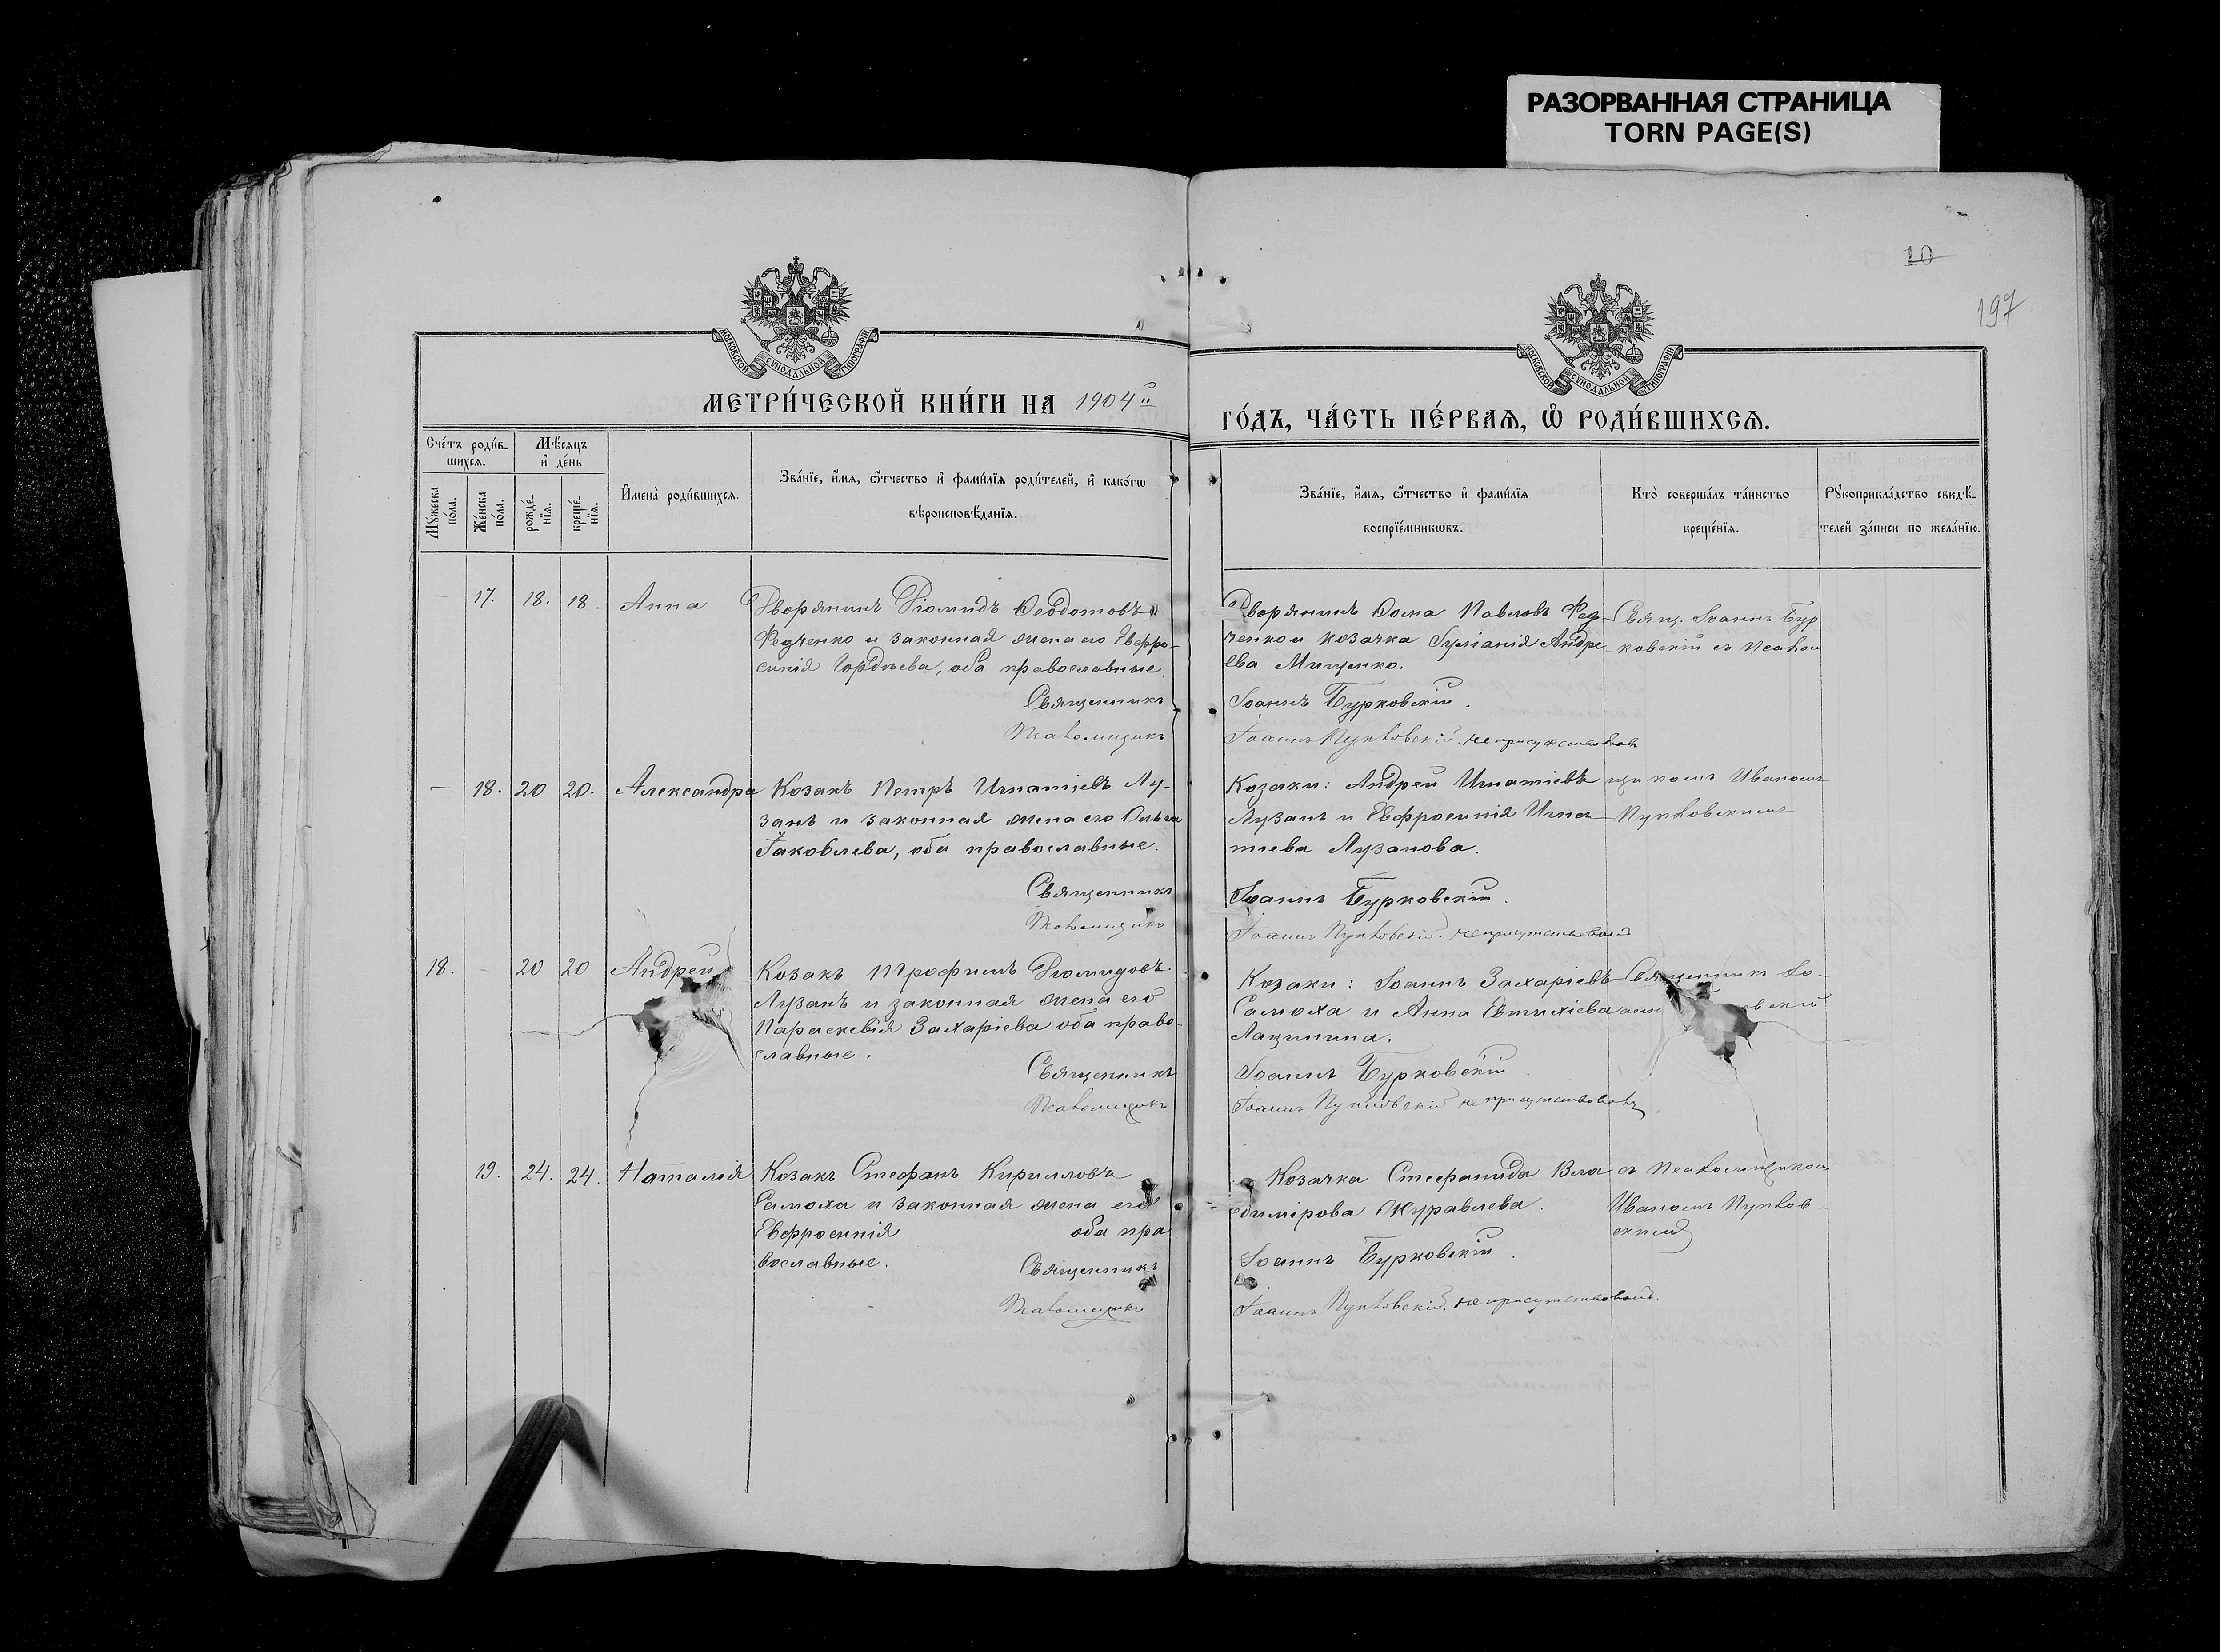 РАЗОРВАННАЯ СТРАНИЦА
TORN PAGE(S)
10
197
МОСКОВСКОЙ СѴНОДАЛЬНОЙ ТИПОГРАФІИ
МОСКОВСКОЙ СѴНОДАЛЬНОЙ ТИПОГРАФІИ
МЕТРИ́ЧЕСКОЙ КНИ́ГИ НА 1904й
ГО́ДЪ, ЧА́СТЬ ПЕ́РВАѦ, Ѽ РОДИ́ВШИХСѦ.
Сче́тъ роди́в-
шихсѧ.
Мѣ́сѧцъ
и҆ де́нь
Мꙋ́жеска
по́ла.
Же́нска
по́ла.
рожде́-
нїѧ.
креще́-
нїѧ.
И҆мена̀ роди́вшихсѧ.
Зва́нїе, и҆́мѧ, ѻ҆́тчество и҆ фами́лїѧ роди́телей, и҆ како́гѡ
вѣроисповѣ́данїѧ.
Зва́нїе, и҆́мѧ, ѻ҆́тчество и҆ фами́лїѧ
воспрїе́мникѡвъ.
Кто̀ соверша́лъ та́инство
креще́нїѧ.
Рꙋкоприкла́дство свидѣ́-
телей за́писи по жела́нїю.
— 17. 18. 18. Анна
Дворянинъ Діомидъ Ѳеодотовъ
Федченко и законная жена его Евфро-
синія Гордѣева, оба православные.
Священникъ
Псаломщикъ
Дворянинъ Ѳома Павловъ Фед-
ченко и козачка Іуліанія Андре-
ева Мищенко.
Іоаннъ Бурковскій.
Іоаннъ Пунковскій. не присутствовалъ
Свящ. Іоаннъ Бур
ковскій съ псалом
— 18. 20 20. Александра
Козакъ Петръ Игнатіевъ Лу-
занъ и законная жена его Ольга
Іаковлева, оба православные.
Священникъ
Псаломщикъ
Козаки: Андрей Игнатіевъ
Лузанъ и Евфросинія Игна-
тіева Лузанова.
Іоаннъ Бурковскій.
Іоаннъ Пунковскій. не присутствовалъ
щикомъ Иваномъ
Пунковскимъ
18. — 20 20 Андрей
Козакъ Трофимъ Діомидовъ
Лузанъ и законная жена его
Параскевія Захаріева оба право-
славные.
Священникъ
Псаломщикъ
Козаки: Іоаннъ Захаріевъ
Самоха и Анна Евтихіева
Лацинина.
Іоаннъ Бурковскій.
Іоаннъ Пунковскій не присутствовалъ
Священникъ Іо-
анн вскій
19. 24. 24. Наталія
Козакъ Стефанъ Кирилловъ
Самоха и законная жена его
Евфросинія оба пра
вославные.
Священникъ
Псаломщикъ
Козачка Стефанида Вла
димірова Журавлева.
Іоаннъ Бурковскій.
Іоаннъ Пунковскій. не присутствовалъ.
съ псаломщикомъ
Иваномъ Пунков-
скимъ